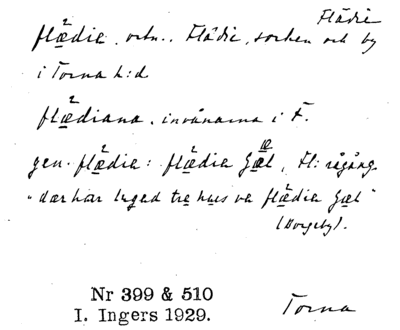 Flädie
flædie, ortn., Flädie, socken och by
i Torna h:d
flædiana, invånarna i F.
gen. flædia: flædia gæl, Fl: rågång
"där har legad tre hus ve flædia gæl"
(Borgeby).
Nr 399 & 510
I. Ingers 1929.
Torna